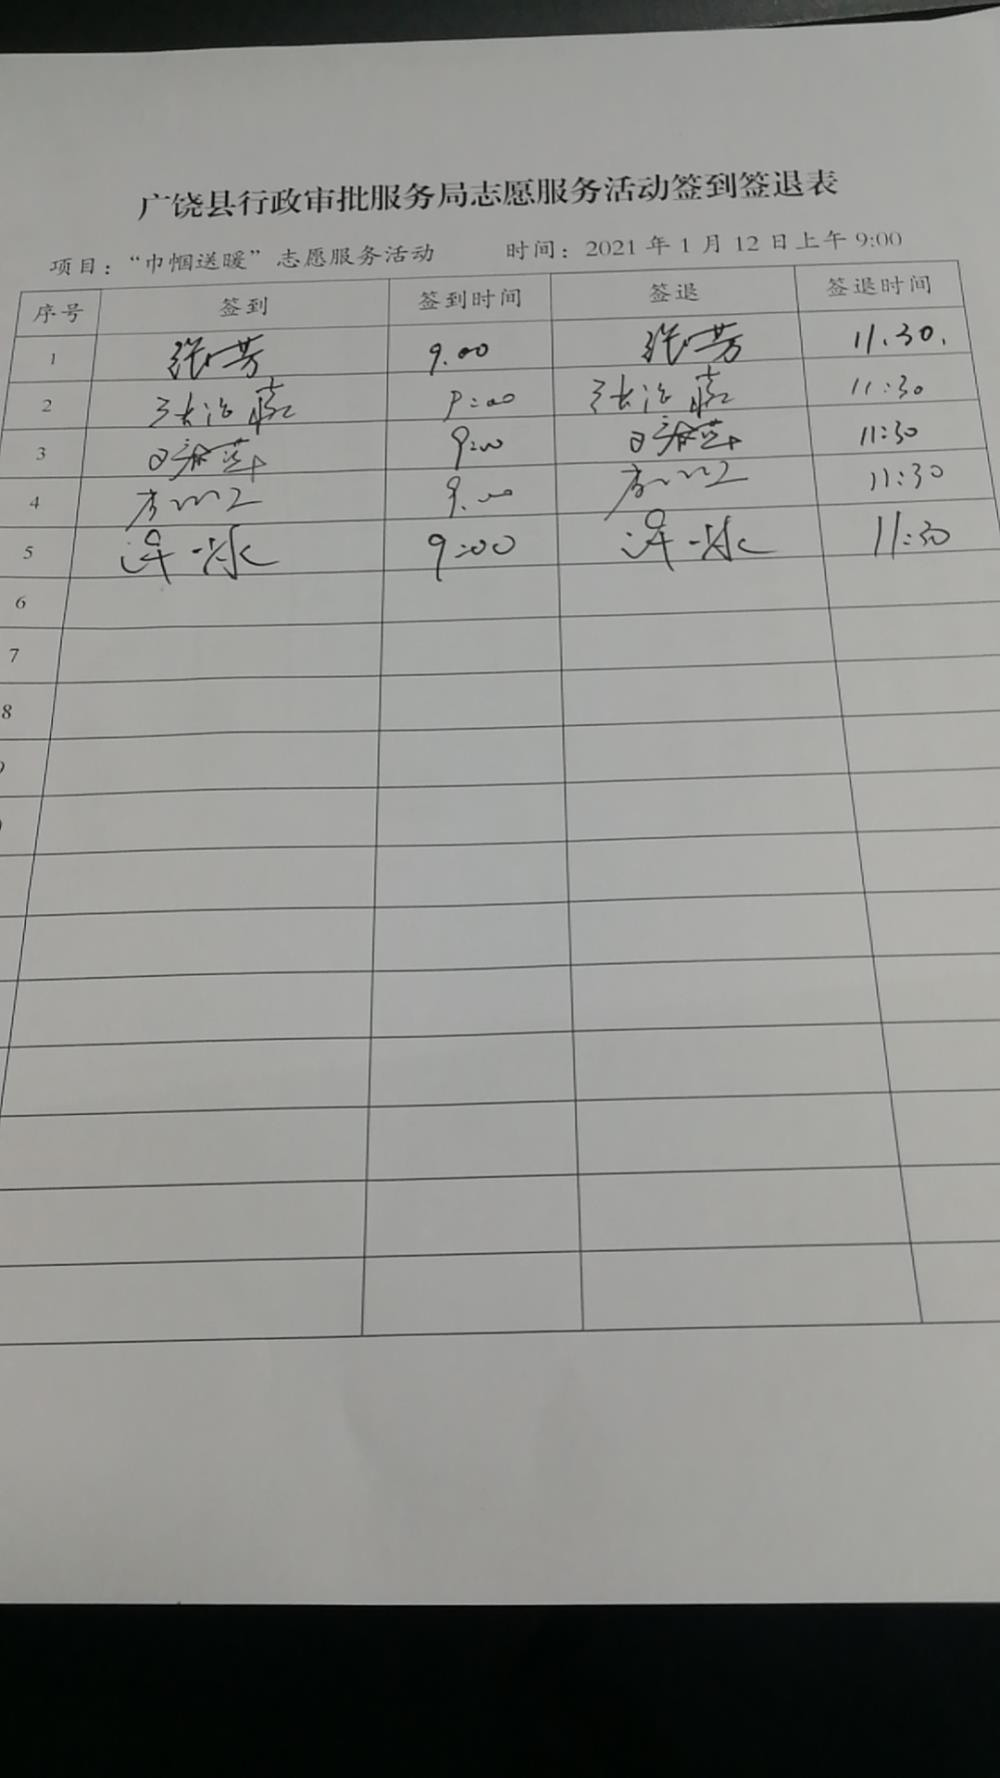 广饶县行政审批服务局志愿服务活动签到签退表
项目：“巾帼送暖”志愿服务活动 时间：2021年1月12日上午9:00
序号 签到 签到时间 签退 签退时间
1 张芳 9.00 张芳 11.30.
2 9:00 11:30
3 9:00 11:30
4 9.00 11:30
5 9:00 11:30
6
7
8